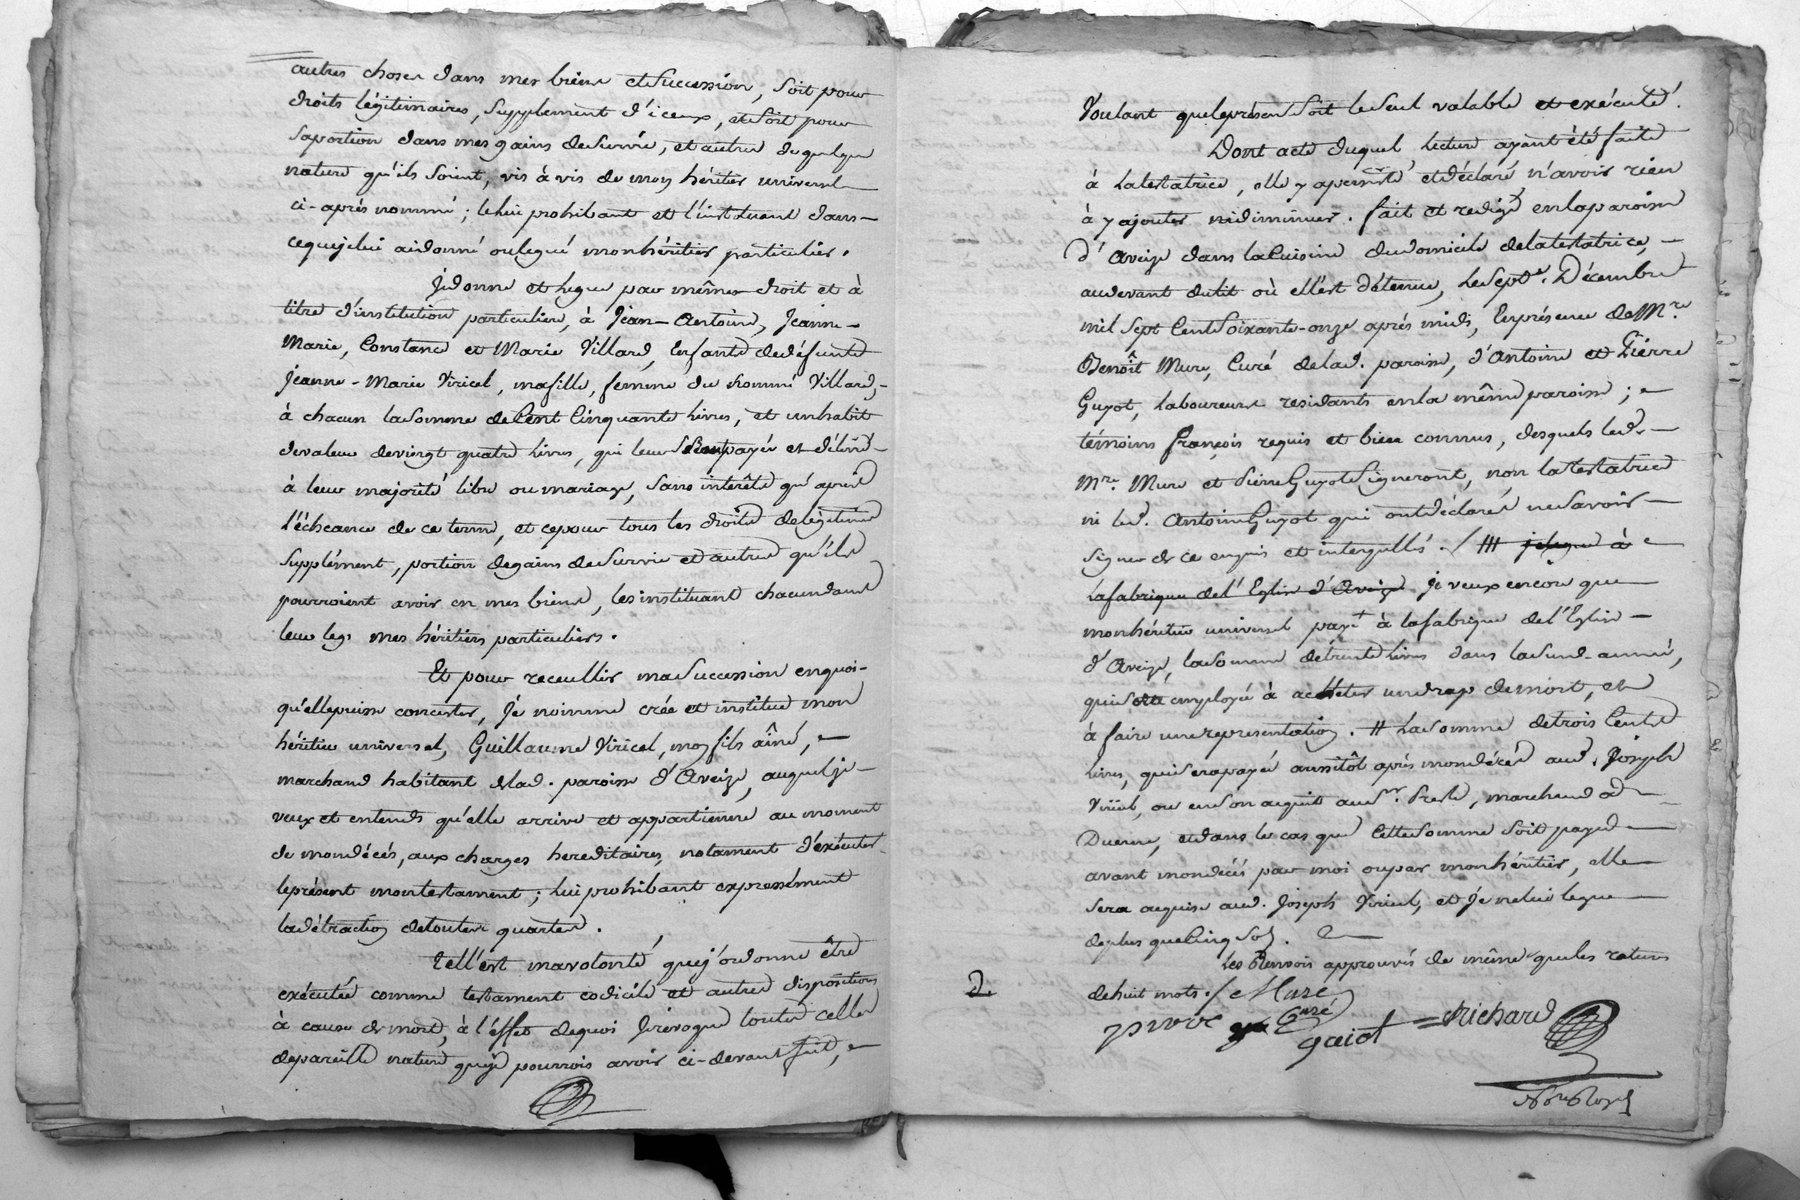 autres choses dans mes biens et succession, soit pour
droits légitimaires, supplement d'iceux, et soit pour
sa portion dans mes gains de survie, et autres de quelque
nature qu'ils soient, vis à vis de mon héritier universel
ci-après nommé; le lui prohibant et l'instituant dans
ce que je lui ai donné ou legué mon héritier particulier.
Je donne et legue par mêmes droit et à
titre d'institution particuliere, à Jean-Antoine, Jeanne-
Marie, Constance et Marie Villard, Enfants de défunte
Jeanne-Marie Viricel, ma fille, femme du nommé Villard,
à chacun la somme de Cent Cinquante Livres, et un habit
de valeur de vingt quatre Livres, qui leur seront payés et délivré
à leur majorité libre ou mariage, sans interêts qu'après
l'échéance de ce terme, et ce pour tous les droits de légitime
supplément, portion de gains de survie et autres qu'ils
pourroient avoir en mes biens, les instituant chacun dans
leur legs mes héritiers particuliers.
Et pour receuillir ma succession en quoi-
qu'elle puisse concister, Je nomme crée et institue mon
héritier universel, Guillaume Viricel, mon fils aîné,
marchand habitant de lad. paroisse d'Aveize, auquel je
veux et entends qu'elle arrive et appartienne au moment
de mon décés, aux charges hereditaires, notament d'exécuter
le présent mon testament; lui prohibant expressément
la détraction de toutes quartes.
Tell'est ma volonté que j'ordonne être
exécutée comme testament codicile et autres dispositions
à cause de mort, à l'effet de quoi Je révoque toutes celles
de pareille nature que je pourrois avoir ci-devant fait,
Voulant que le présent soit le seul valable et exécuté.
Dont acte duquel lecture ayant été faite
à la testatrice, elle y a persisté et déclaré n'avoir rien
à y ajouter ni diminuer. fait et redigé en la paroisse
d'Aveize dans la Cuisine du domicile de la testatrice,
au devant du lit où ell'est détenue, le sept Décembre
mil sept Cent soixante-onze après midi, En présence de Mre
Benoît Mure, Curé de lad. paroisse, d'Antoine et Pierre
Guyot, laboureurs residants en la même paroisse;
témoins françois requis et bien connus, desquels led.
Mre. Mure et Pierre Guyot signeront, non la testatrice
ni led. Antoine Guyot qui ont déclarés ne savoir
signer de ce enquis et interpellés. / # je legue à
la fabrique de l'Eglise d'Aveize Je veux encore que
mon héritier universel paye à la fabrique de l'Eglise
d'Aveize, la somme de trente Livres dans la sud. année,
qui sera employé à acheter un drap de mort, et
à faire une representation. # La somme de trois Cents
Livres, qui sera payée aussitôt après mon décés aud. Joseph
Viricel, ou en son acquit au Sr. marchand à
Duerne, et dans le cas que Cette somme soit payée
avant mon décés par moi ou par mon héritier, elle
sera acquise aud. Joseph Viricel, et Je ne lui legue
de plus que Cinq Sols.
Les Renvois approuvés de même que les ratures
de huit mots. / Mure
Curé
guiot Richard